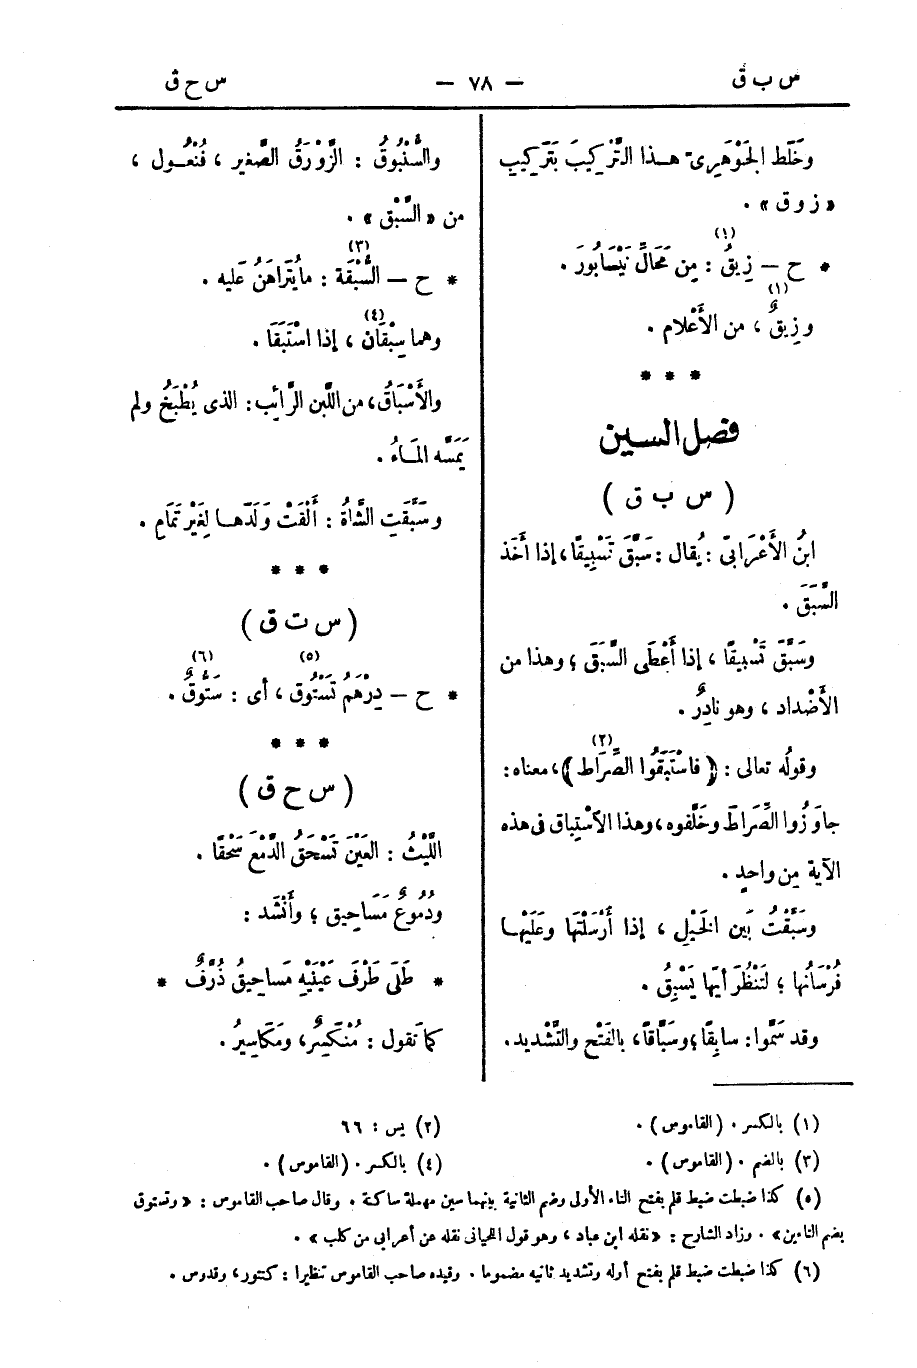 س ب ق
— ٧٨ —
س ح ق
وخَلَط الجَوْهَرِىّ هـذا التَّرْكِيبَ بَتَرْكِيبِ
« زوق » .
* ح — زِيقُ (١) : مِن مَحَالِّ نَيْسَابُورَ .
وزِيقٌ (١) ، من الأَعْلام .
* * *
فصل السين
( س ب ق )
ابنُ الأَعْرَابىّ : يُقال : سَبَّقَ تَسْبِيقًا ، إذا أَخَذ
السَّبَقَ .
وسَبَّقَ تَسْبِيقًا ، إذا أَعْطَى السَّبَقَ ؛ وهذا من
الأَضْداد ، وهو نادِرٌ .
وقولُه تعالى : ﴿ فاسْتَبَقُوا الصِّرَاط ﴾ (٢) ، معناه :
جاوَزُوا الصِّرَاطَ وخَلَّفوه ، وهذا الاسْتِباق فى هذه
الآية مِن واحدٍ .
وسَبَّقْتُ بَين الخَيْلِ ، إذا أَرْسَلْتَها وعَلَيْها
فُرْسَانُها ؛ لتَنْظُرَ أيّها يَسْبِقُ .
وقد سَمَّوا : سابِقًا ؛ وسَبَّاقًا ، بالفَتْح والتَّشْديد .
والسُّنْبُوقُ : الزَّوْرَقُ الصَّغير ، فُنْعُـول ،
من « السَّبْق » .
* ح — السُّبْقَة (٣) : ما يُتَراهَنُ عَليه .
وهما سِبْقَان (٤) ، إذا اسْتَبَقَا .
والأَسْبَاقُ ، من اللَّبن الرَّائِب : الذى يُطْبَخُ ولم
يَمَسَّه المَـاءُ .
وسَبَّقَتِ الشَّاةُ : أَلْقَتْ وَلَدَهـا لِغَيْرِ تَمَامٍ .
* * *
( س ت ق )
* ح — دِرْهَمٌ تَسْتُوق (٥) ، أى : سَتُّوقٌ (٦) .
* * *
( س ح ق )
اللَّيْثُ : العَيْنَ تَسْحَقُ الدَّمْعَ سَحْقًا .
ودُمُوعٌ مَسَاحِيق ؛ وأَنْشَد :
* طَلَى طَرْفَ عَيْنَيْهِ مَساحِيقُ ذُرَّفُ *
كما تَقول : مُنْكَسِرٌ ، ومَكَاسِيرُ .
(١) بالكسر . (القاموس) .
(٢) يس : ٦٦
(٣) بالضم . (القاموس) .
(٤) بالكسر . (القاموس) .
(٥) كذا ضبطت ضبط قلم بفتح التاء الأولى وضم الثانية بينهما سين مهملة ساكنة . وقال صاحب القاموس : « وتستوق
بضم التاءين » . وزاد الشارح : « نقله ابن عباد ، وهو قول اللحيانى نقله عن أعرابى من كلب » .
(٦) كذا ضبطت ضبط قلم بفتح أوله وتشديد ثانيه مضموما . وقيده صاحب القاموس تنظيرا : كتنور ، وقدوس .